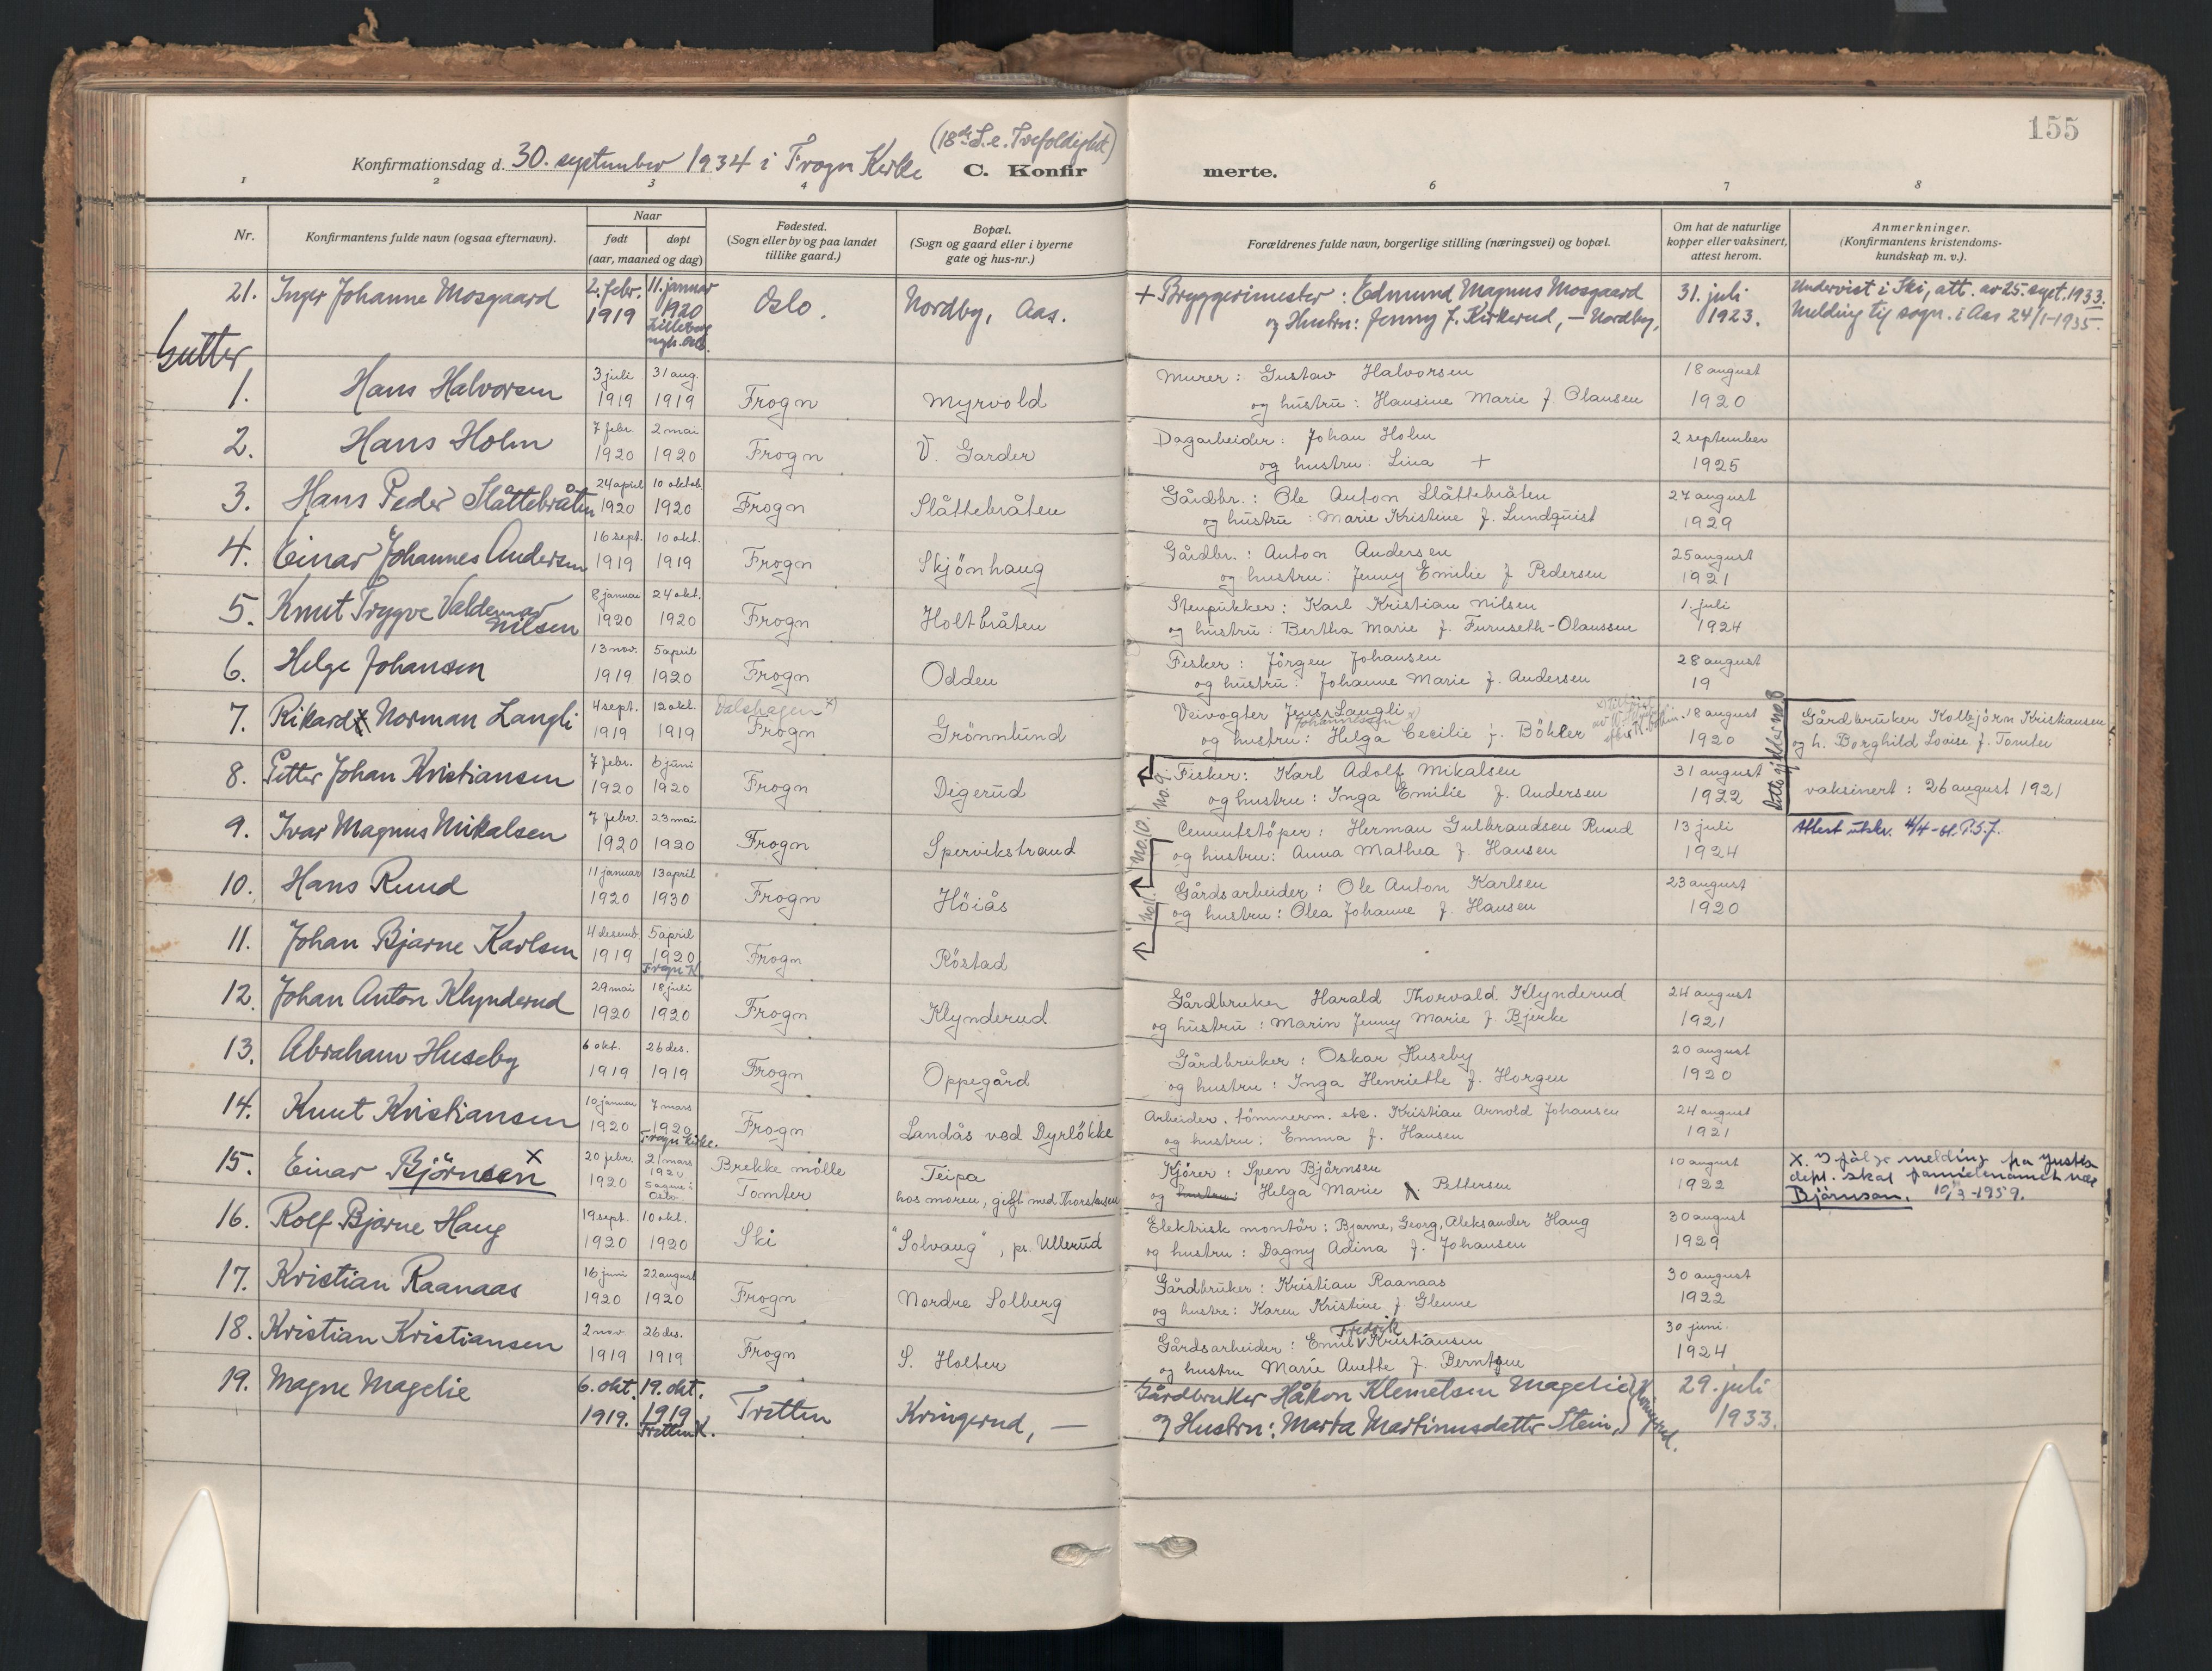 155
(18de S. e. Trefoldighet)
Konfirmationsdag d. 30. september 1934 i Frogn Kirke C. Konfirmerte.
1 2 3 4 6 7 8
Nr. Konfirmantens fulde navn (ogsaa efternavn). Naar født døpt (aar, maaned og dag) Fødested. (Sogn eller by og paa landet tillike gaard.) Bopæl. (Sogn og gaard eller i byerne gate og hus-nr.) Forældrenes fulde navn, borgerlige stilling (næringsvei) og bopæl. Om hat de naturlige kopper eller vaksinert, attest herom. Anmerkninger. (Konfirmantens kristendomskundskap m. v.).
21. Inger Johanne Mosgaard 2. febr. 1919 11. januar 1920 Oslo. Nordby, Aas. + Bryggerimester: Edmund Magnus Mosgaard 31. juli 1923. Undervist i Ski, att. av 25. sept. 1933.
og Hustru: Jenny f. Kirkerud, — Nordby, Melding til sogn. i Aas 24/1-1935.
Gutter
1. Hans Halvorsen 3 juli 1919 31 aug. 1919 Frogn Myrvold Murer: Gustav Halvorsen 18 august 1920
og hustru: Hansine Marie f. Olausen
2. Hans Holm 7 febr. 1920 2 mai 1920 Frogn V. Garder Dagarbeider: Johan Holm 2 september 1925
og hustru. Lina +
3. Hans Peder Slåttebråten 24 april 1920 10 oktob. 1920 Frogn Slåttebråten Gårdbr.: Ole Anton Slåttebråten 27 august 1929
og hustru: Marie Kristine f. Lundquist
4. Einar Johannes Andersen 16 sept. 1919 10 okt. 1919 Frogn Skjönhaug Gårdbr.: Anton Andersen 25 august 1921
og hustru: Jenny Emilie f Pedersen
5. Knut Trygve Valdemar Nilsen 8 januar 1920 24 okt. 1920 Frogn Holtbråten Stenpukker: Karl Kristian Nilsen 1. juli 1924
og hustru: Bertha Marie f. Furuseth-Olaussen
6. Helge Johansen 13 nov. 1919 5 april 1920 Frogn Odden Fisker: Jörgen Johansen 28 august 19
og hustru: Johanne Marie f. Andersen
7. Rikard Norman Langli 4 sept. 1919 12 okt. 1919 Dalshagen x) Frogn Grönnlund Veivogter Jens Langli Johannessen 18 august 1920 Gårdbruker Kolbjörn Kristiansen
og hustru: Helga Cecilie f. Böhler og h. Borghild Lovise f. Tomter
Dette gjelder no. 8
8. Petter Johan Kristiansen 7 febr. 1920 6 juni 1920 Frogn Digerud no. 9. Fisker: Karl Adolf Mikalsen 31 august 1922 vaksinert: 26 august 1921
og hustru: Inga Emilie f. Andersen
9. Ivar Magnus Mikalsen 7 febr. 1920 23 mai 1920 Frogn Spervikstrand no. 10. Cementstöper: Herman Gulbrandsen Ruud 13 juli 1924 Attest utskr. 4/4-61.
og hustru: Anna Mathea f Hansen
10. Hans Ruud 11 januar 1920 13 april 1930 Frogn Höiås no. 11. Gårdsarbeider: Ole Anton Karlsen 23 august 1920
og hustru: Olea Johanne f. Hansen
11. Johan Bjarne Karlsen 4 desemb. 1919 5 april 1920 Frogn K. Frogn Röstad
12. Johan Anton Klynderud 29 mai 1920 18 juli 1920 Frogn Klynderud Gårdbruker Harald Thorvald Klynderud 24 august 1921
og hustru: Marin Jenny Marie f. Bjerke
13. Abraham Huseby 6 okt. 1919 26 des. 1919 Frogn Oppegård Gårdbruker: Oskar Huseby 20 august 1920
og hustru: Inga Henriette f. Horgen
14. Knut Kristiansen 10 januar 1920 7 mars 1920 Frogn Kirke. Frogn Landås ved Dyrlökke Arbeider, tömmerm. etc. Kristian Arnold Johansen 24 august 1921
og hustru: Emma f. Hansen
15. Einar Björnsen x 20 febr. 1920 21 mars 1920 Sagene i Oslo Brekke mölle Tomter Teipa Kjörer: Sven Björnsen 10 august 1922 X. Ifølge melding fra Justis
hos moren, gift med Thorstensen og hustru: Helga Marie f. Pettersen dept. skal familienavnet være
Björnson. 10/3-1959.
16. Rolf Bjarne Haug 19. sept. 1920 10 okt. 1920 Ski "Solvang", pr. Ullerud Elektrisk montör: Bjarne, Georg, Aleksander Haug 30 august 1929
og hustru: Dagny Adina f. Johansen
17. Kristian Raanaas 16 juni 1920 22 august 1920 Frogn Nordre Solberg Gårdbruker: Kristian Raanaas 30 august 1922
og hustru: Karen Kristine f Glenne
18. Kristian Kristiansen 2 nov 1919 26 des. 1919 Frogn S. Holter Gårdsarbeider: Emil Fredrik Kristiansen 30 juni 1924
og hustru Marie Anette f. Berntsen
19. Magne Magelie 6. okt. 1919. 19. okt. 1919 Tretten K. Tretten Kringerud, — Gårdbruker Håkon Klemetsen Magelie 29. juli 1933.
og Hustru: Marta Martinusdatter Stein, Kringerud.